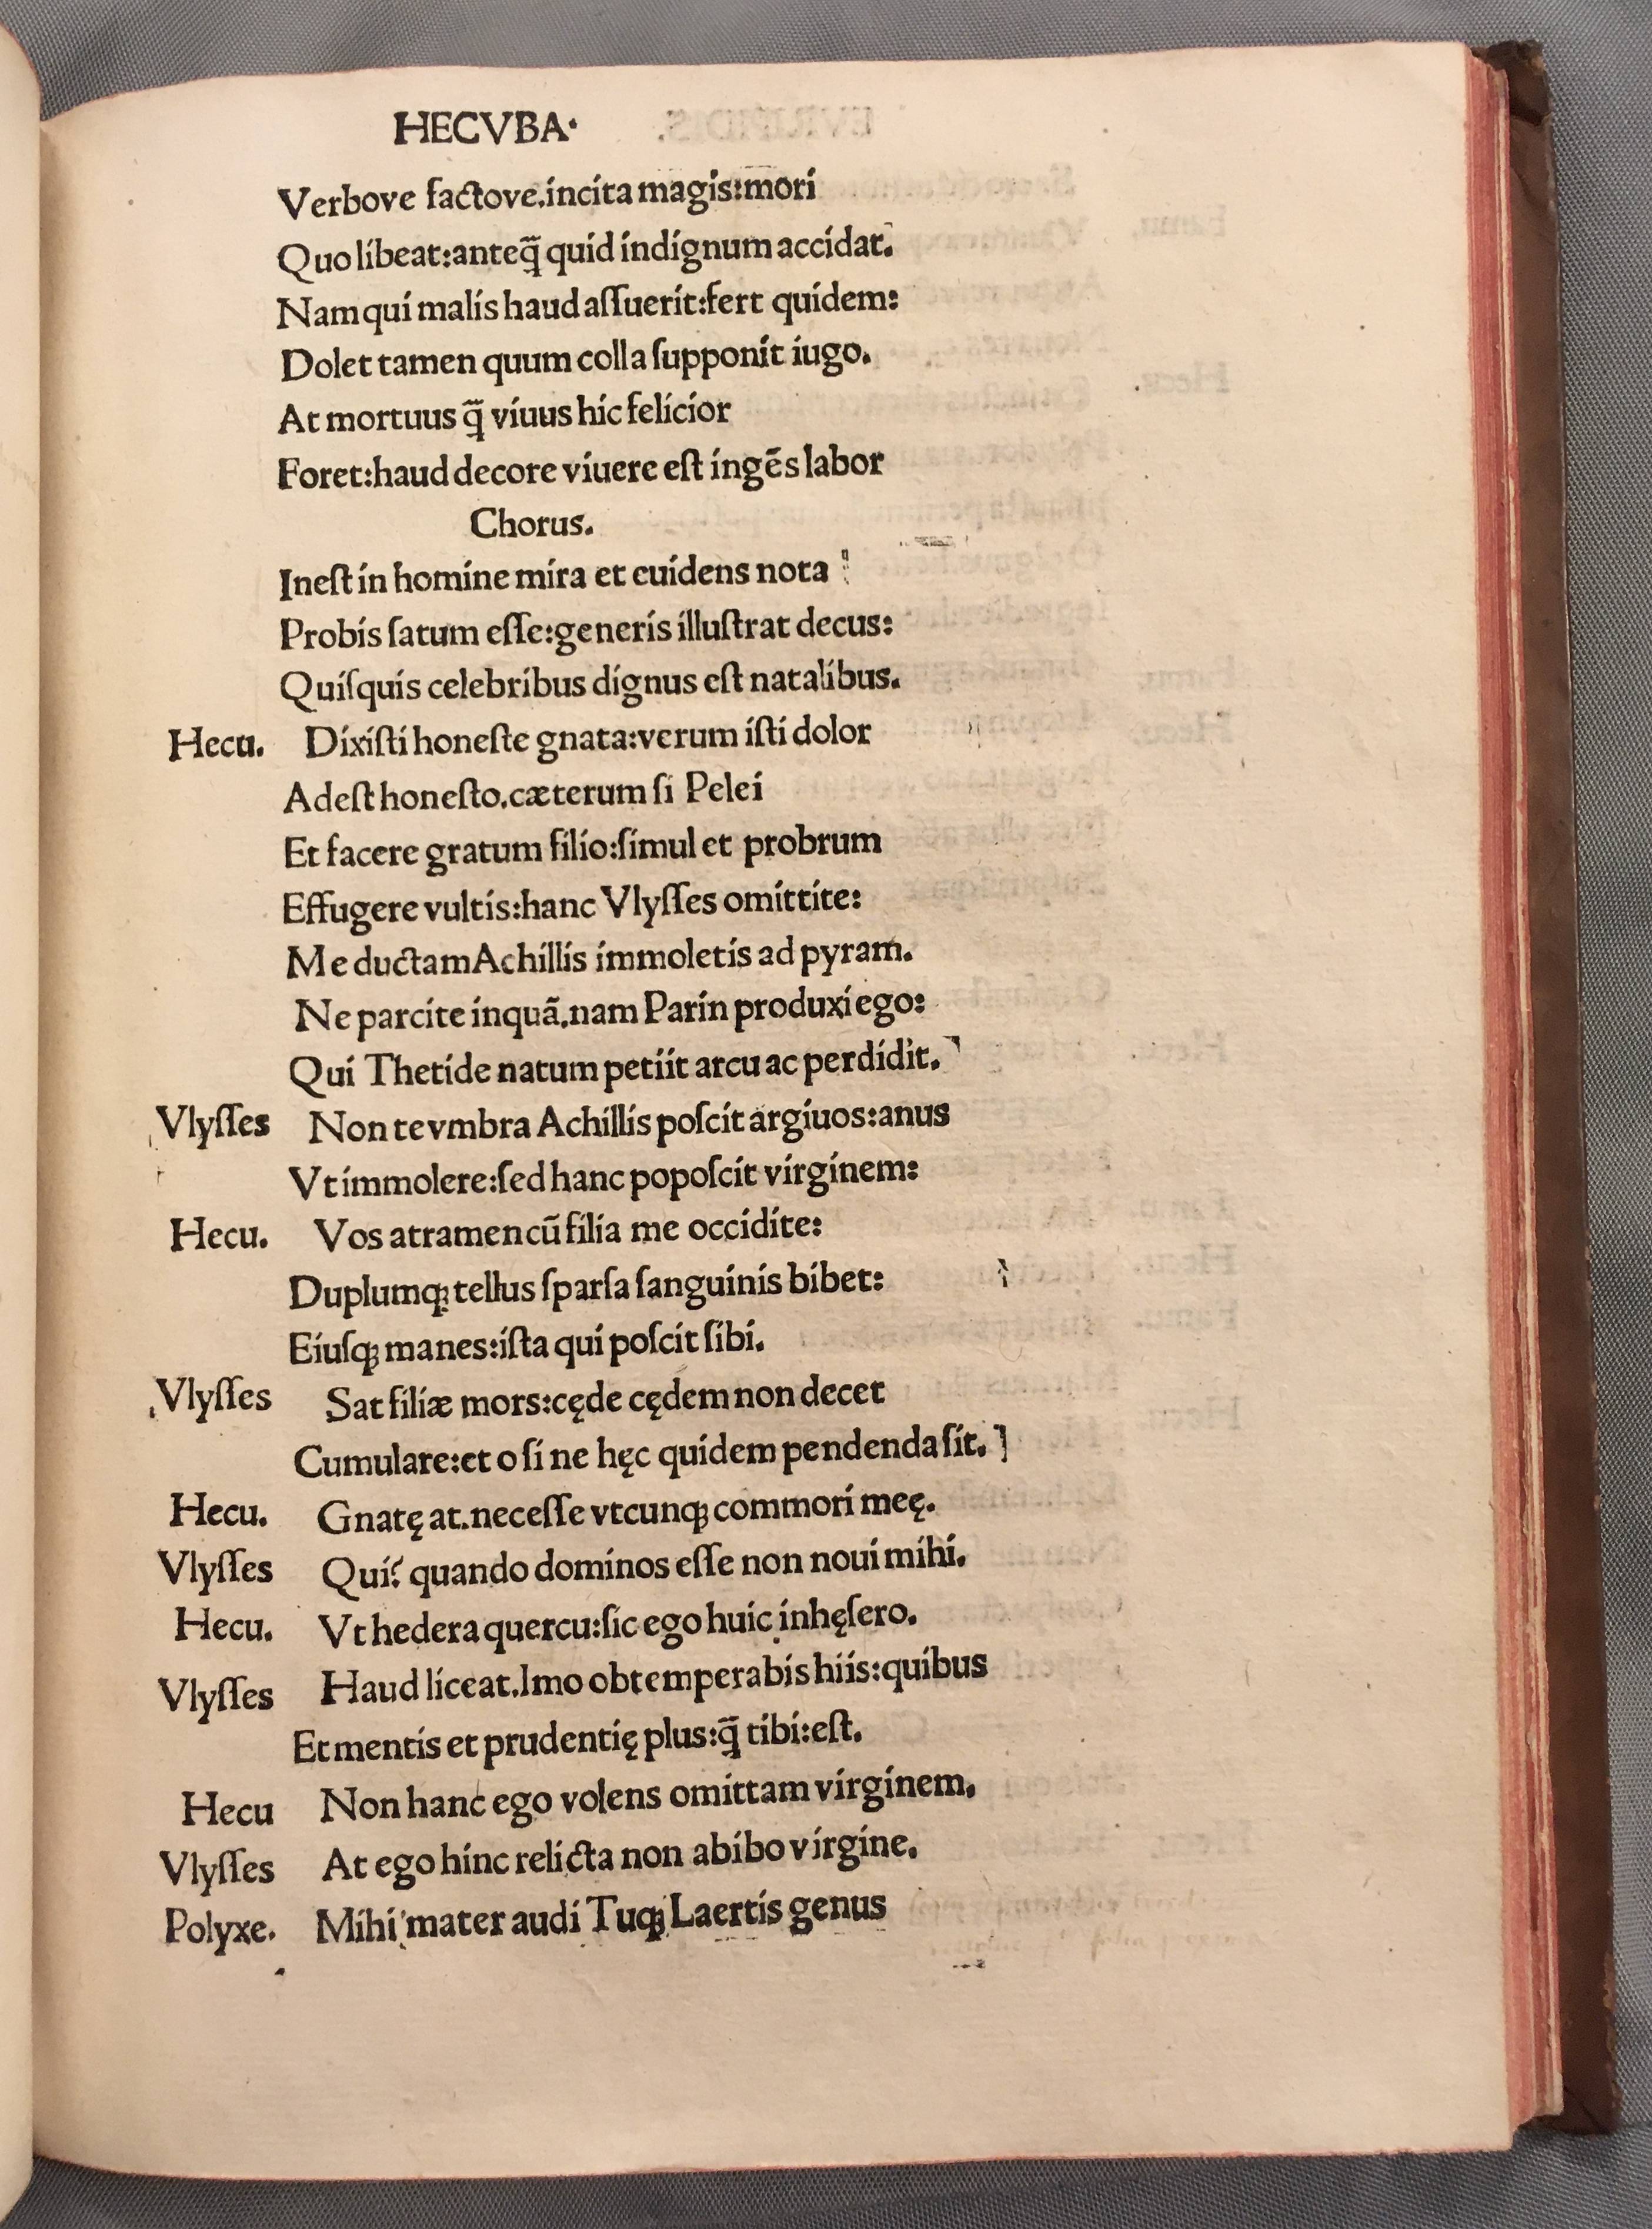 HECVBA·
Verbove factove.incita magis:mori
Quo libeat:anteq̃ quid indignum accidat.
Nam qui malis haud aſſuerit:fert quidem:
Dolet tamen quum colla ſupponit iugo.
At mortuus q̃ viuus hic felicior
Foret:haud decore viuere eſt ingẽs labor
Chorus.
Ineſt in homine mira et euidens nota
Probis ſatum eſſe:generis illuſtrat decus:
Quiſquis celebribus dignus eſt natalibus.
Hecu. Dixiſti honeſte gnata:verum iſti dolor
Adeſt honeſto.cæterum ſi Pelei
Et facere gratum filio:ſimul et probrum
Effugere vultis:hanc Vlyſſes omittite:
Me ductam Achillis immoletis ad pyram.
Ne parcite inquã.nam Parin produxi ego:
Qui Thetide natum petiit arcu ac perdidit.
Vlyſſes Non te vmbra Achillis poſcit argiuos:anus
Vt immolere:ſed hanc popoſcit virginem:
Hecu. Vos atramen cũ filia me occidite:
Duplumqꝫ tellus ſparſa ſanguinis bibet:
Eiuſqꝫ manes:iſta qui poſcit ſibi.
Vlyſſes Sat filiæ mors:cęde cędem non decet
Cumulare:et o ſi ne hęc quidem pendenda ſit.
Hecu. Gnatę at.neceſſe vtcunqꝫ commori meę.
Vlyſſes Qui? quando dominos eſſe non noui mihi.
Hecu. Vt hedera quercu:ſic ego huic inhęſero.
Vlyſſes Haud liceat.Imo obtemperabis hiis:quibus
Et mentis et prudentię plus:q̃ tibi:eſt.
Hecu Non hanc ego volens omittam virginem.
Vlyſſes At ego hinc relicta non abibo virgine.
Polyxe. Mihi mater audi Tuqꝫ Laertis genus